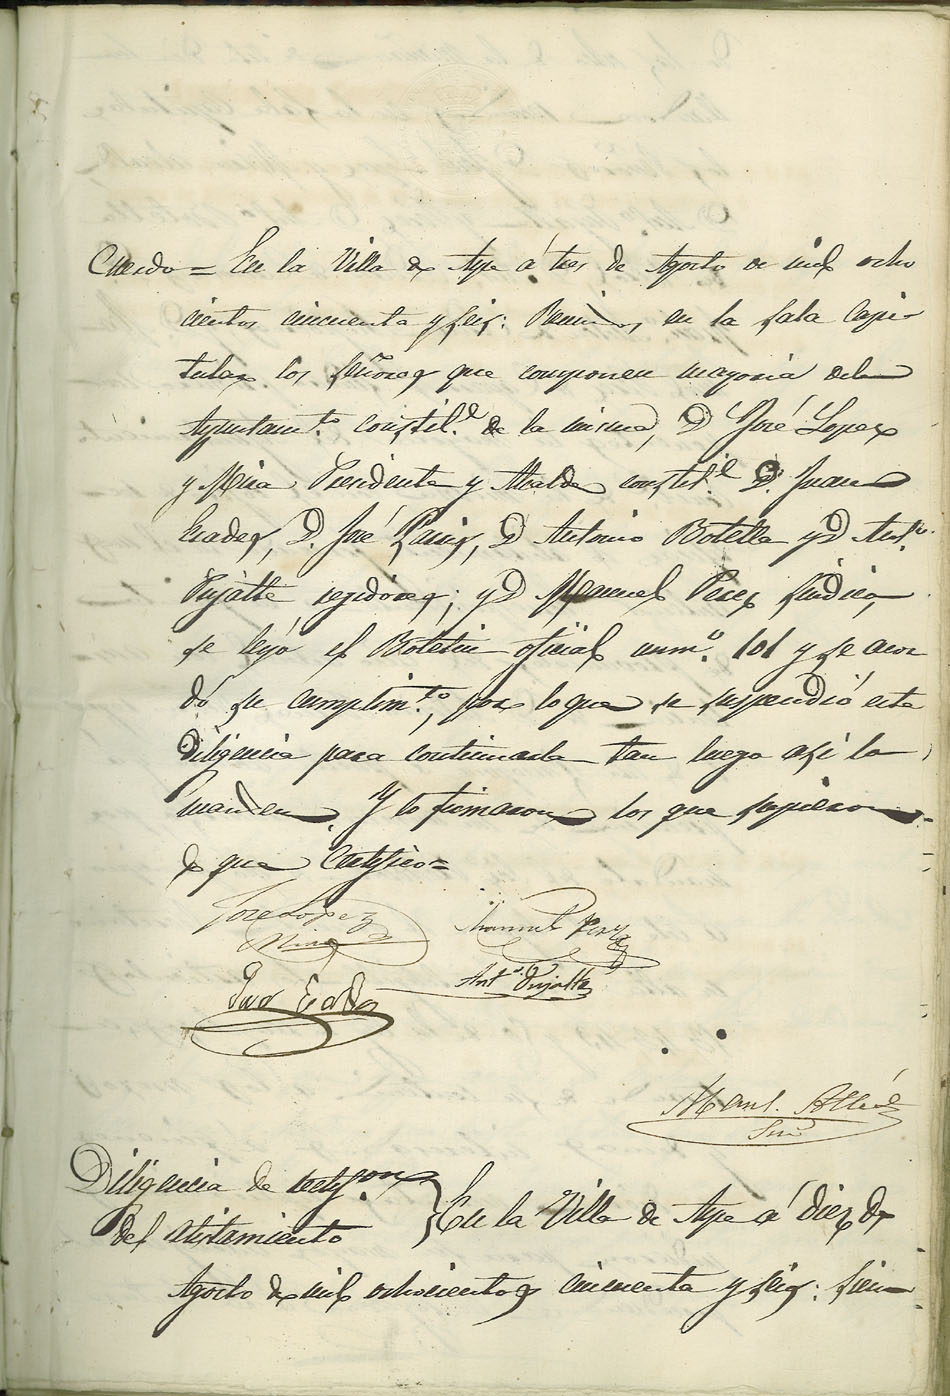 Acuerdo = En la Villa de Aspe á tres de Agosto de mil ocho
cientos cincuenta y seis: Reunidos en la sala Capi-
tular los señores que componen mayoria del
Ayuntam.to constil.l de la misma, D José Lopez
y Mira Presidente y Alcalde constil.l D. Juan
D. José D Antonio Botella y D Ant.o
Pujalte regidores; y D Manuel Perez sindico,
se leyó el Boletin oficial num.o 101 y se acor
dó su cumplim.to, por lo que se suspendió esta
Diligencia para continuarla tan luego asi lo
manden. Y lo firmaron los que supieron
de que Certifico=
Jose Lopez Manuel Perez
Mira
Ant.o Pujalte
Man.l
Srio
Diligencia de rectif.on
del alistamiento } En la Villa de Aspe á diez de
Agosto de mil ochocientos cincuenta y seis: sien-